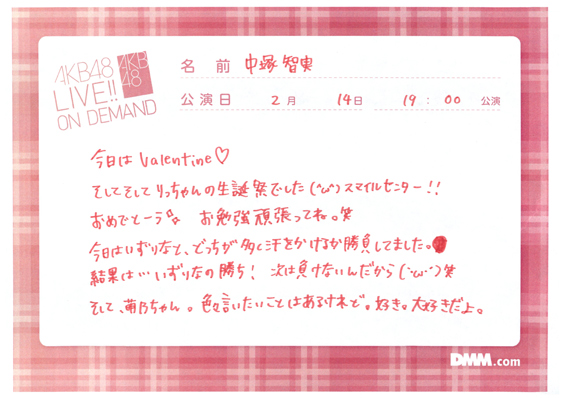 AKB48
LIVE!!
ON DEMAND
AKB
48
名 前 中塚智実
公演日 2月 14日 19:00 公演
今日は Valentine♡
そしてそしてりっちゃんの生誕祭でした(^ω^)スマイルセンター!!
おめでとーう お勉強頑張ってね。笑
今日はいずりなと、どっちが多く汗をかけるか勝負してました。
結果は…いずりなの勝ち! 次は負けないんだから(・ω・)笑
そして、萌乃ちゃん。色々言いたいことはあるけれど。好き。大好きだよ。
DMM.com